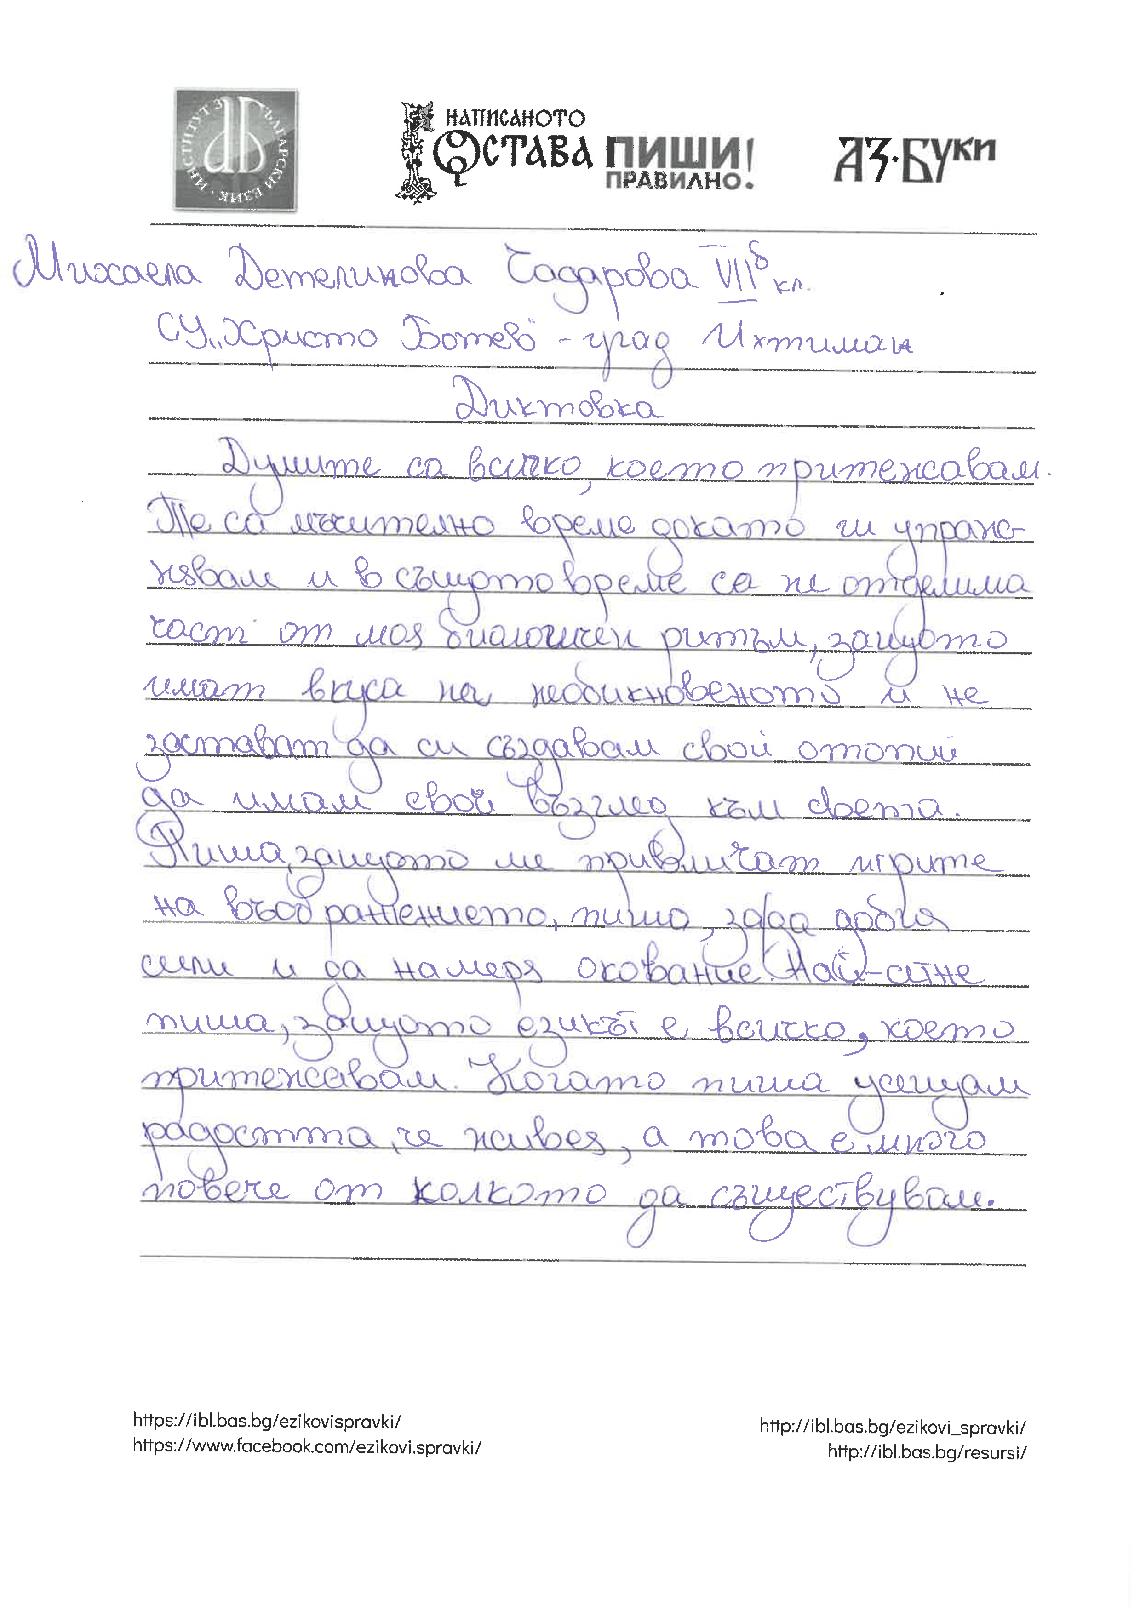 ИНСТИТУТ ЗА БЪЛГАРСКИ ЕЗИК
НАПИСАНОТО
ОСТАВА ПИШИ!
ПРАВИЛНО.
АЗ·БУКИ
Михаела Детелинова Чадарова VII б кл.
СУ„Христо Ботев" - град Ихтиман
Диктовка
Думите са всичко, което притежавам.
Те са мъчително време докато ги упраж-
нявам и в същото време са не отделима
част от моя биологичен ритъм, защото
имат вкуса на необикновеното и не
заставят да си създавам свой отопии
да имам свой възглед към света.
Пиша, защото ме привличат игрите
на въображението, пиша, за да добия
сили и да намеря окование. Най-сетне
пиша, защото езикът е всичко, което
притежавам. Когато пиша усещам
радостта, че живея, а това е много
повече от колкото да съществувам.
https://ibl.bas.bg/ezikovispravki/
https://www.facebook.com/ezikovi.spravki/
http://ibl.bas.bg/ezikovi_spravki/
http://ibl.bas.bg/resursi/